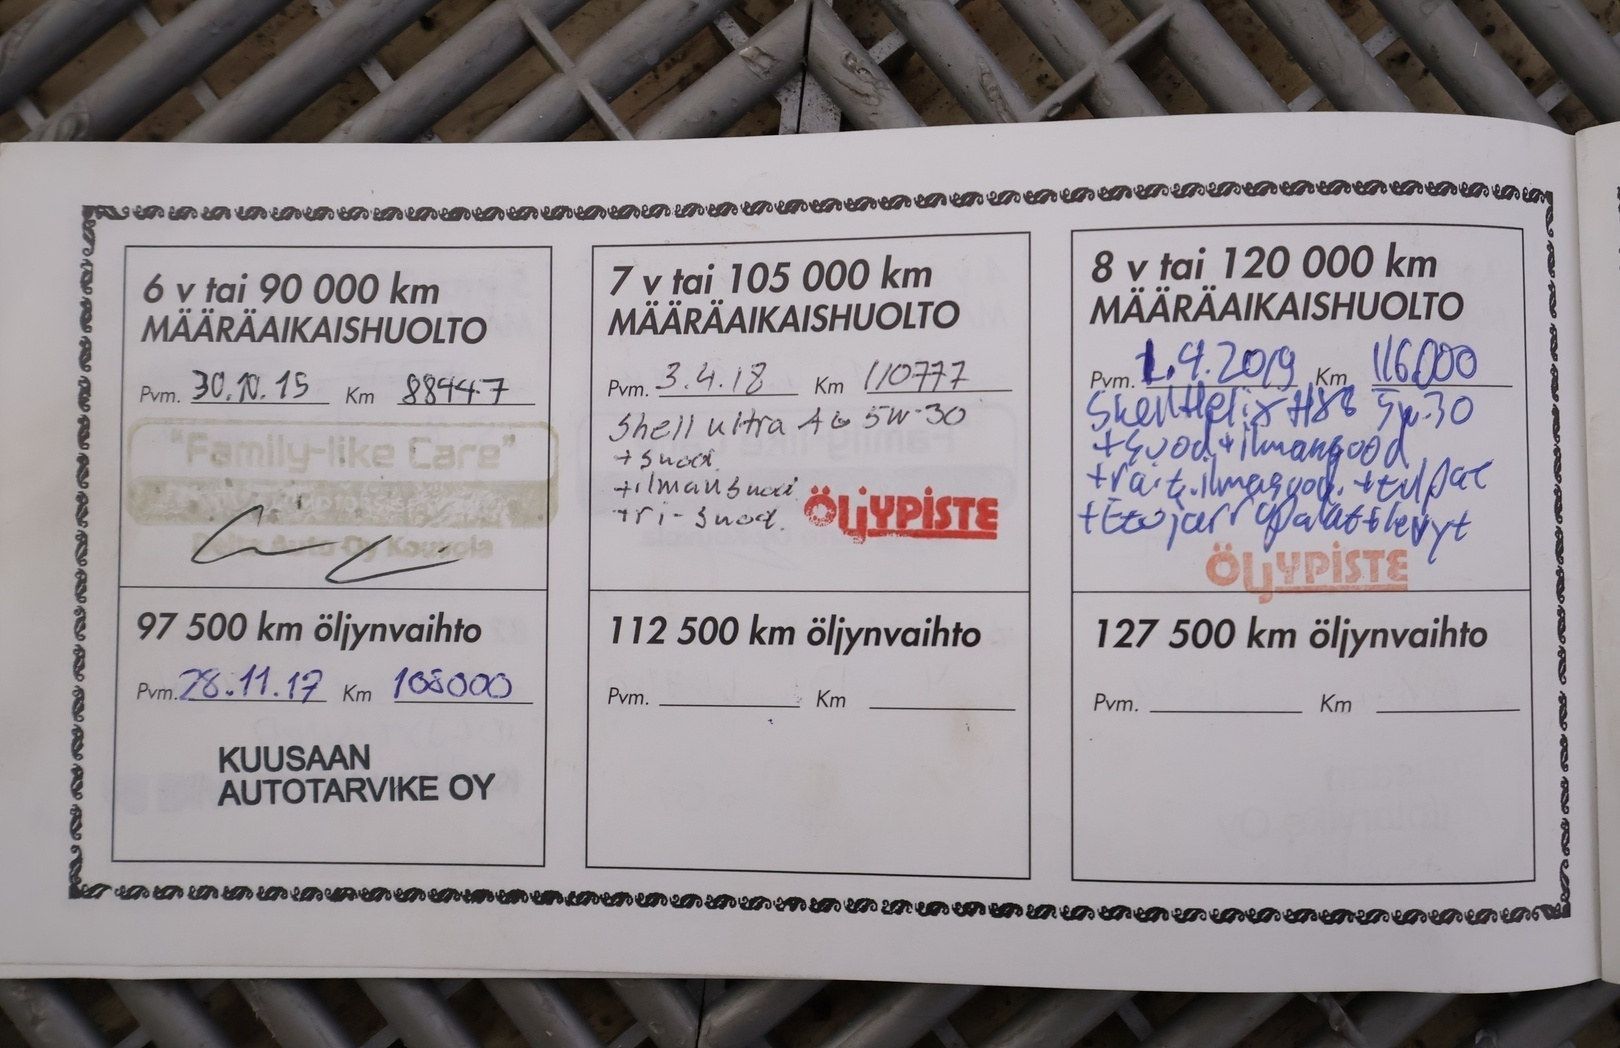 6 v tai 90 000 km
MÄÄRÄAIKAISHUOLTO
Pvm. 30.10.15 Km 88447
"Family-like Care"
Delta Auto Oy Kouvola
97 500 km öljynvaihto
Pvm. 28.11.17 Km 108000
KUUSAAN
AUTOTARVIKE OY
7 v tai 105 000 km
MÄÄRÄAIKAISHUOLTO
Pvm. 3.4.18 Km 110777
Shell ultra AG 5W-30
+ suod.
+ilmansuod
+ri-suod.
ÖLJYPISTE
112 500 km öljynvaihto
Pvm. Km
8 v tai 120 000 km
MÄÄRÄAIKAISHUOLTO
Pvm. 1.4.2019 Km 116.000
Shell Helix H88 5W-30
+suod+ilmansuod
+rait.ilmasuod. +tulpat
+Etujarr palat+levyt
ÖLJYPISTE
127 500 km öljynvaihto
Pvm. Km